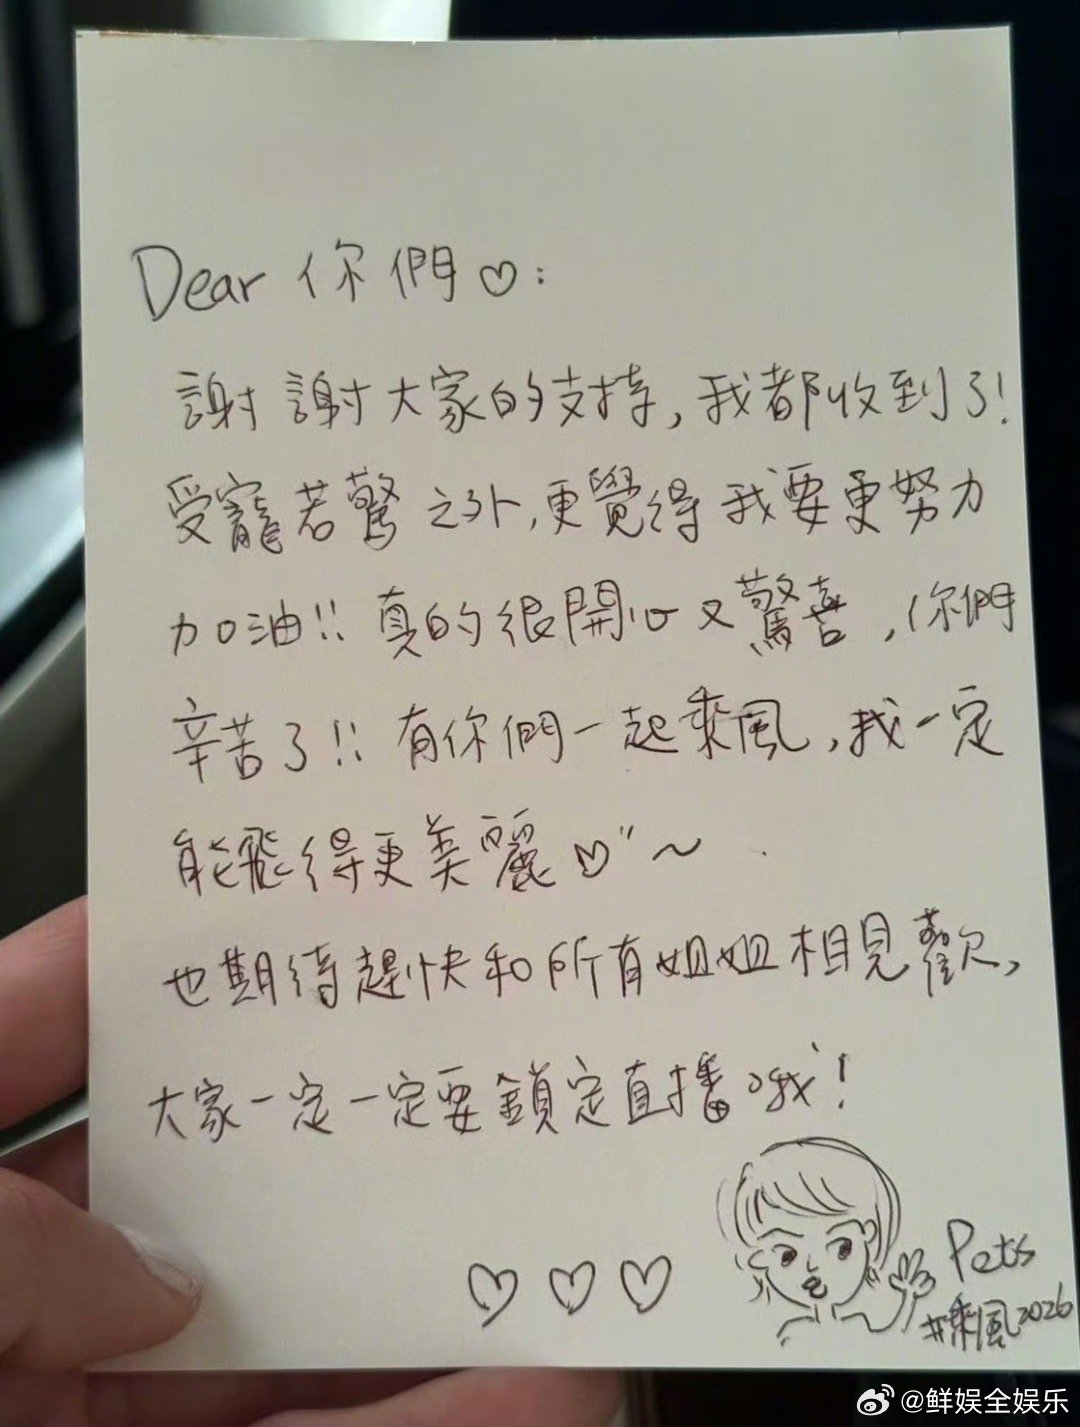 Dear 你們♡:
謝謝大家的支持,我都收到了!
受寵若驚之外,更覺得我要更努力
加油!! 真的很開心又驚喜,你們
辛苦了!! 有你們一起乘風,我一定
能飛得更美麗♡"~
也期待趕快和所有姐姐相見歡,
大家一定一定要鎖定直播哦!
♡♡♡
Pets
#乘風2026
@鲜娱全娱乐